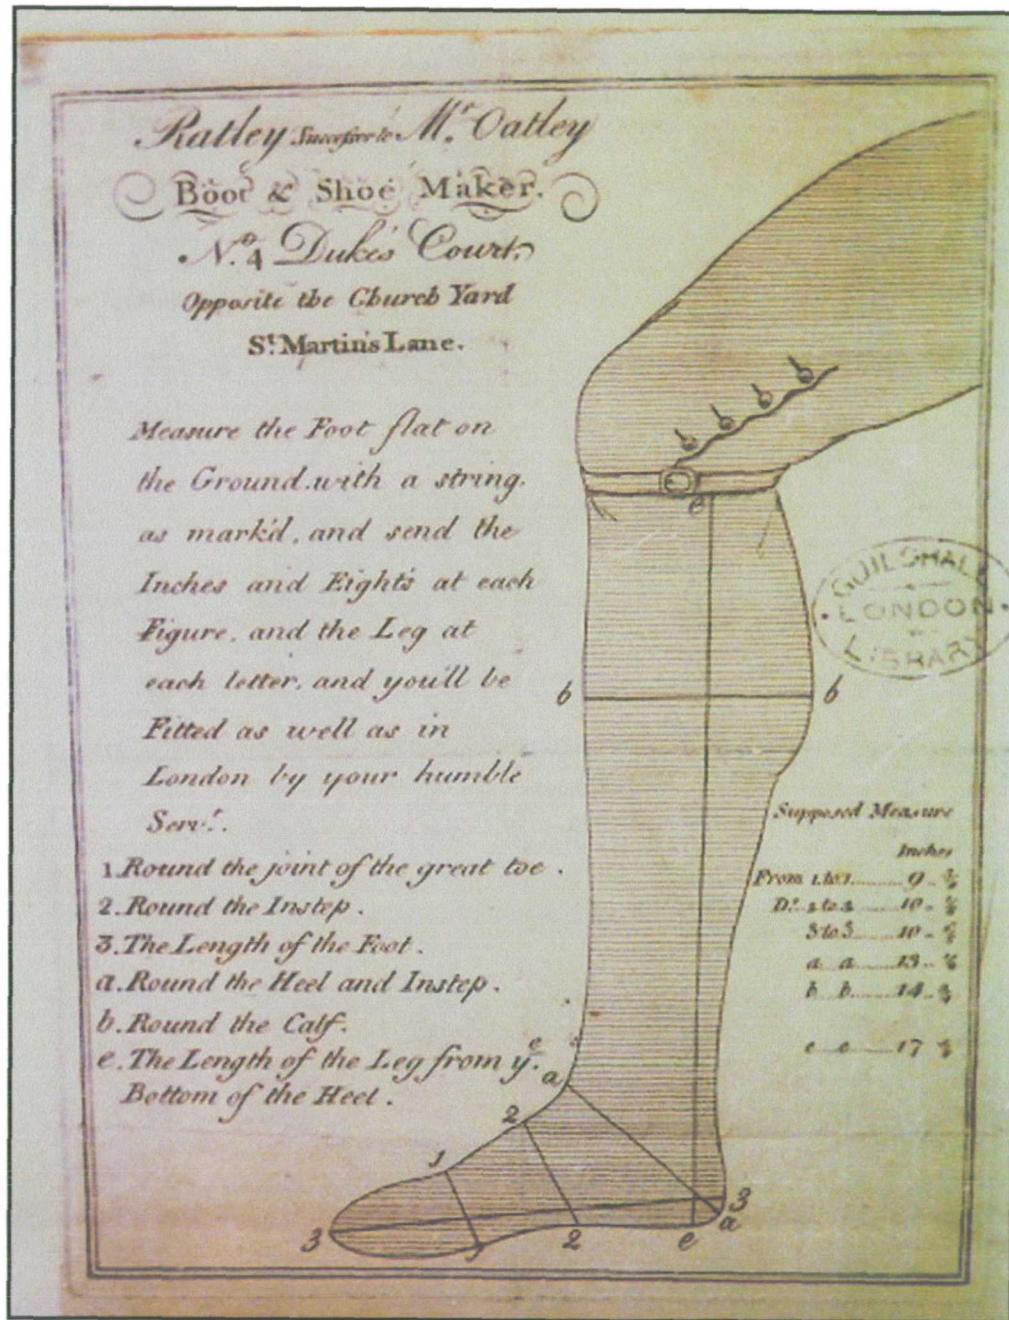 Ratley Successor to Mr. Oatley
Boot & Shoe Maker.
No. 4 Duke's Court,
Opposite the Church Yard
St. Martin's Lane.
Measure the Foot flat on
the Ground. with a string.
as mark'd, and send the
Inches and Eights at each
Figure, and the Leg at
each letter, and you'll be
Fitted as well as in
London by your humble
Servt.
1. Round the joint of the great toe.
2. Round the Instep.
3. The Length of the Foot.
a. Round the Heel and Instep.
b. Round the Calf.
e. The Length of the Leg from ye.
Bottom of the Heel.
e
b b
GUILDHALL
LONDON
LIBRARY
Supposed Measure
Inches
From 1. to 1. 9
Do. 2 to 2 10
3 to 3 10
a a 13
b b 14
e e 17
a
2
1
3
3
a
1
2
e